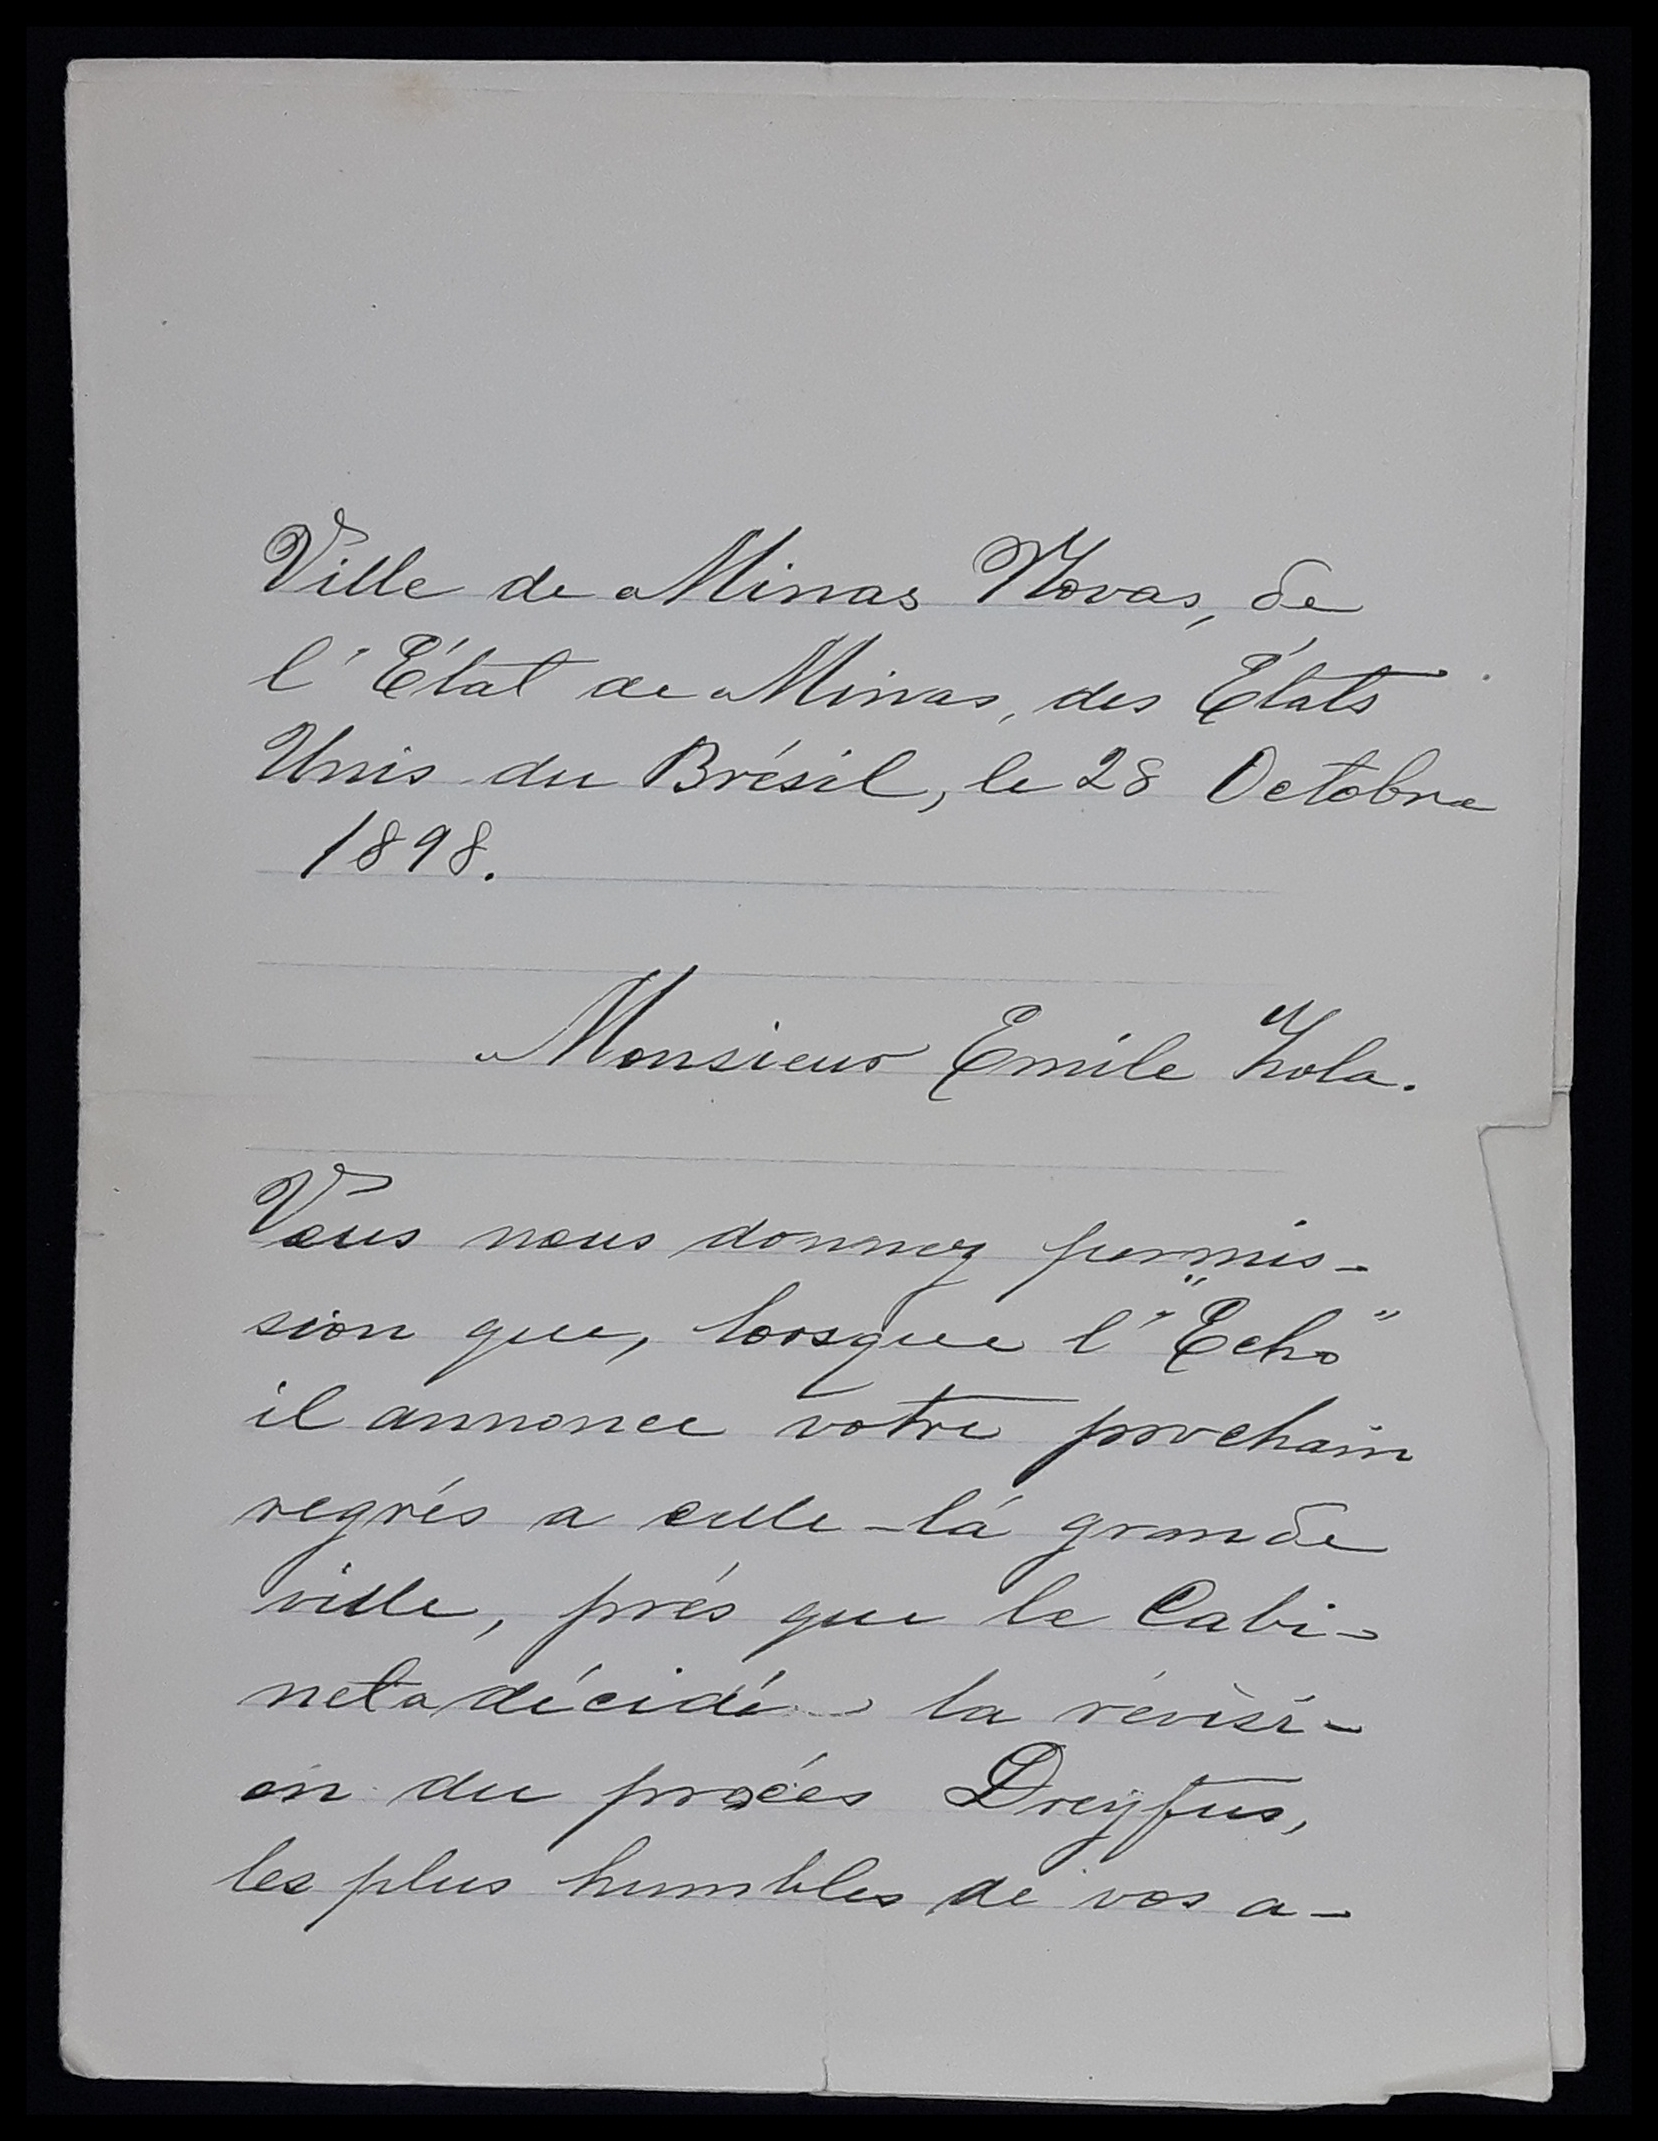 Ville de Minas Novas, de
l'État de Minas, des États
Unis du Brésil, le 28 Octobre
1898.
Monsieur Emile Zola.
Vous nous donnez permis-
sion que, lorsque l'"Echo"
il annonce votre prochain
regrés a celle-lá grande
ville, prés que le Cabi-
net a décidé la révisi-
on du procés Dreyfus,
les plus humbles de vos a-